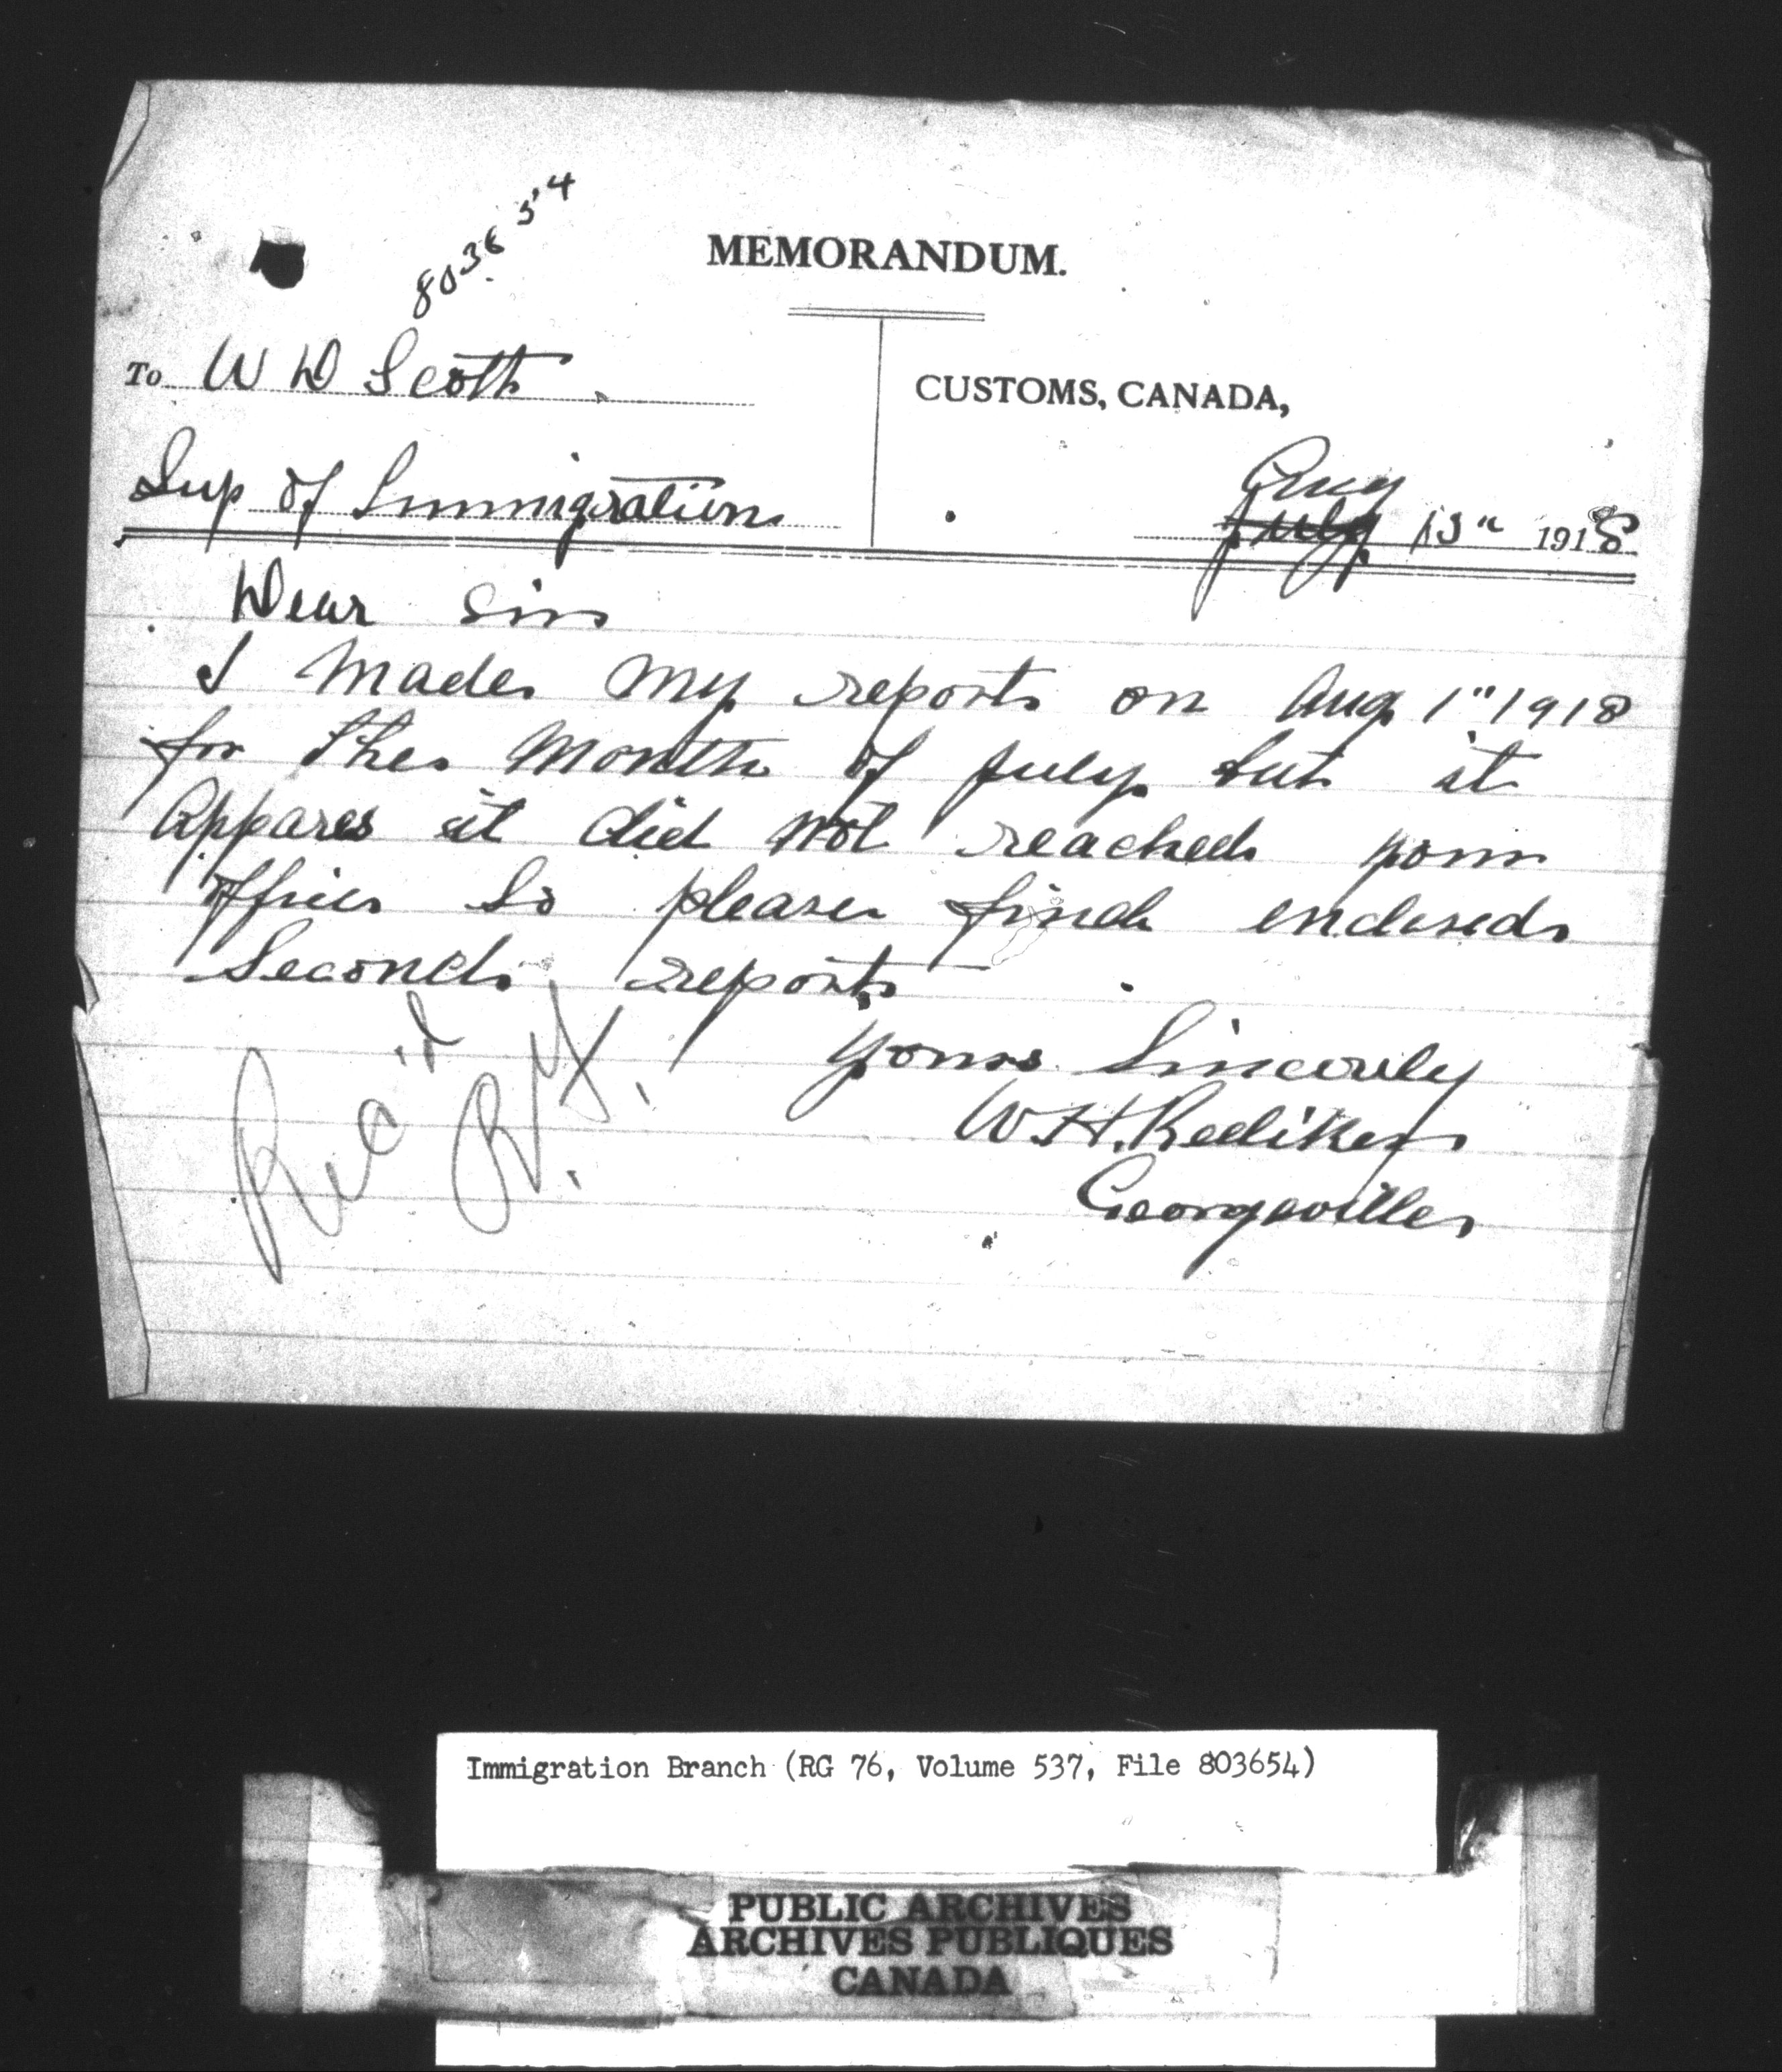 803654
MEMORANDUM.
To W D Scott
CUSTOMS, CANADA,
Sup of Immigration
Aug
July 13" 1918
Dear Sir
I made my report on Aug 1" 1918
for the month of July but it
appares it did not reached your
office so please find enclosed
Second report
Yours Sincerely
W. H. Rediker
Georgeville
Rec'd
R.Y.
Immigration Branch (RG 76, Volume 537, File 803654)
PUBLIC ARCHIVES
ARCHIVES PUBLIQUES
CANADA